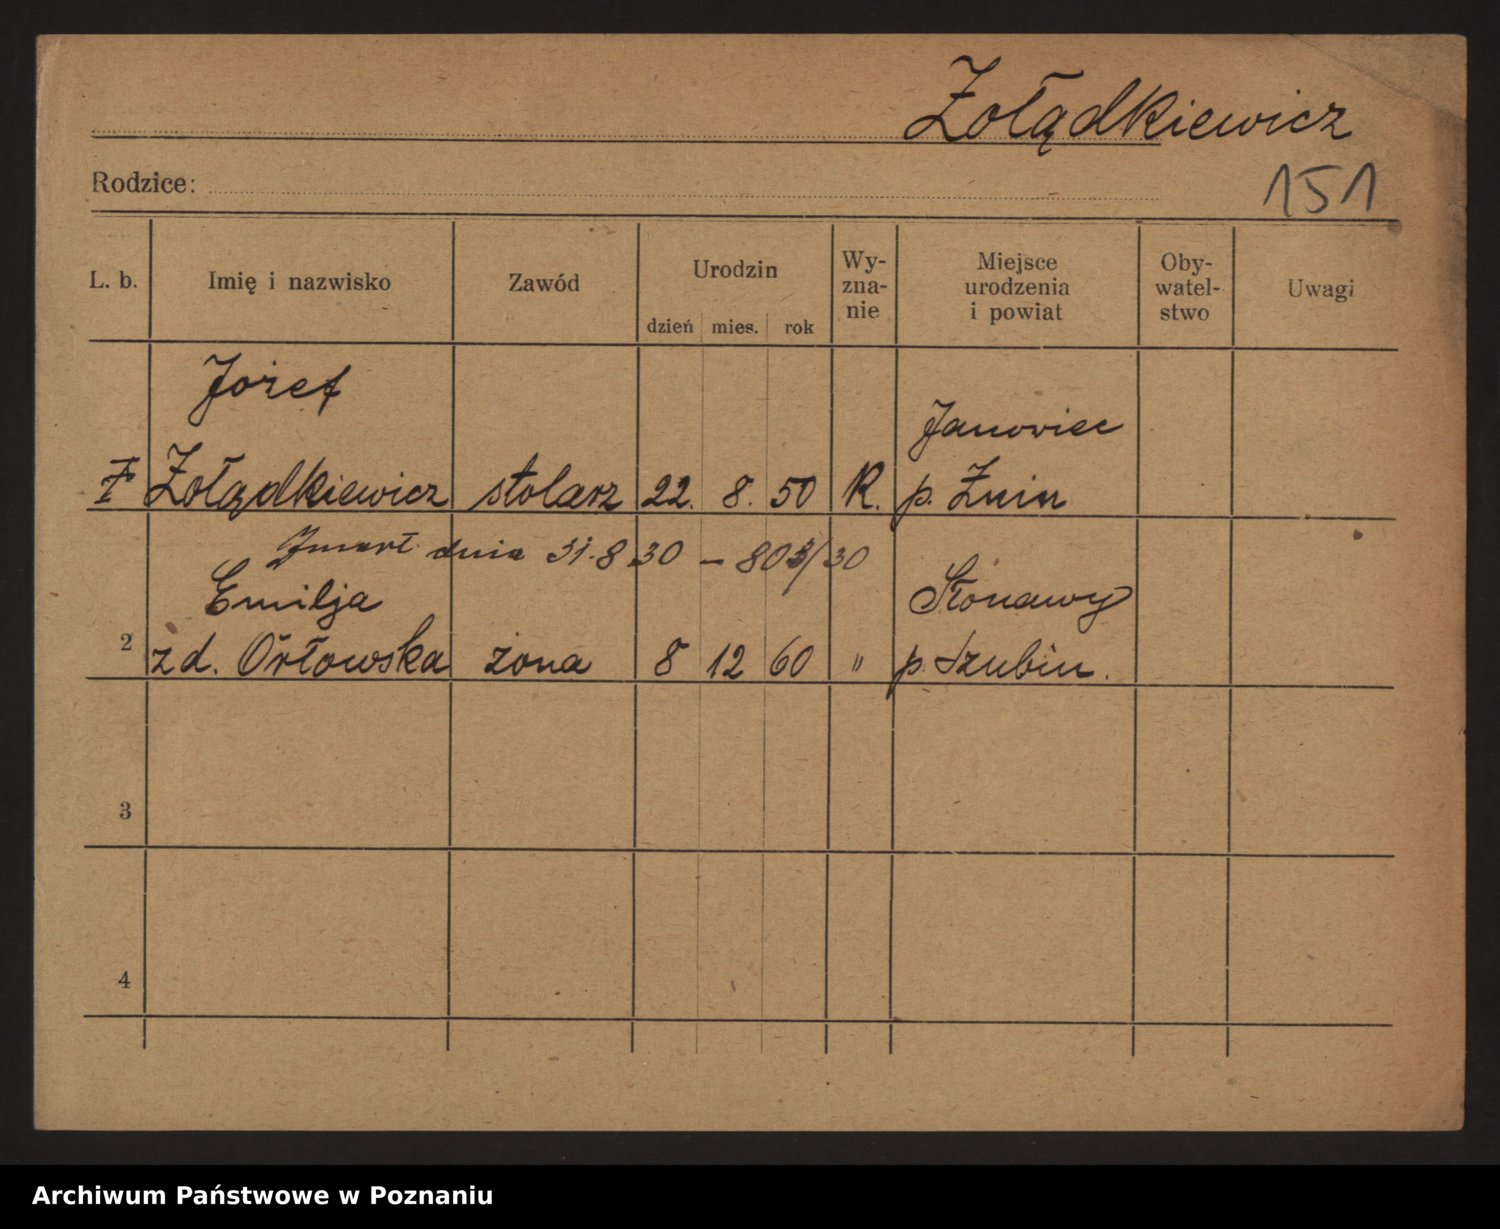 Żołądkiewicz
Rodzice:
151
L. b. Imię i nazwisko Zawód Urodzin Wy-zna-nie Miejsce urodzenia i powiat Oby-watel-stwo Uwagi
dzień mies. rok
Józef
Janowiec
Żołądkiewicz stolarz 22. 8. 50 R. p. Żnin
Zmarł dnia 31.8.30 – 803/30
Emilja Słonawy
2 zd. Orłowska żona 8 12 60 " p. Szubin.
3
4
Archiwum Państwowe w Poznaniu